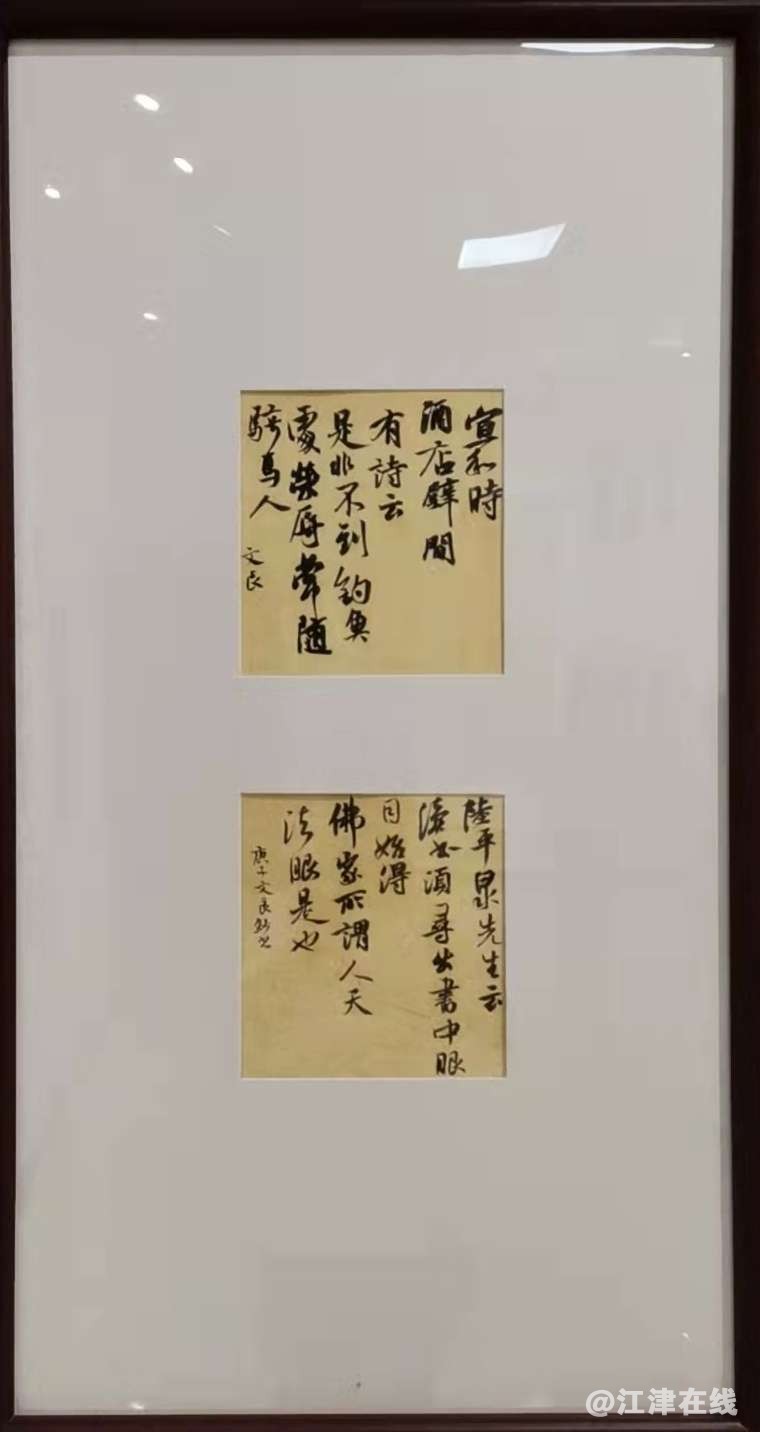 宣和時
酒店壁間
有詩云
是非不到釣魚
處榮辱常隨
騎馬人
文長
陸平泉先生云
讀書須尋出書中眼
目始得
佛家所謂人天
法眼是也
庚子文長
@江津在线